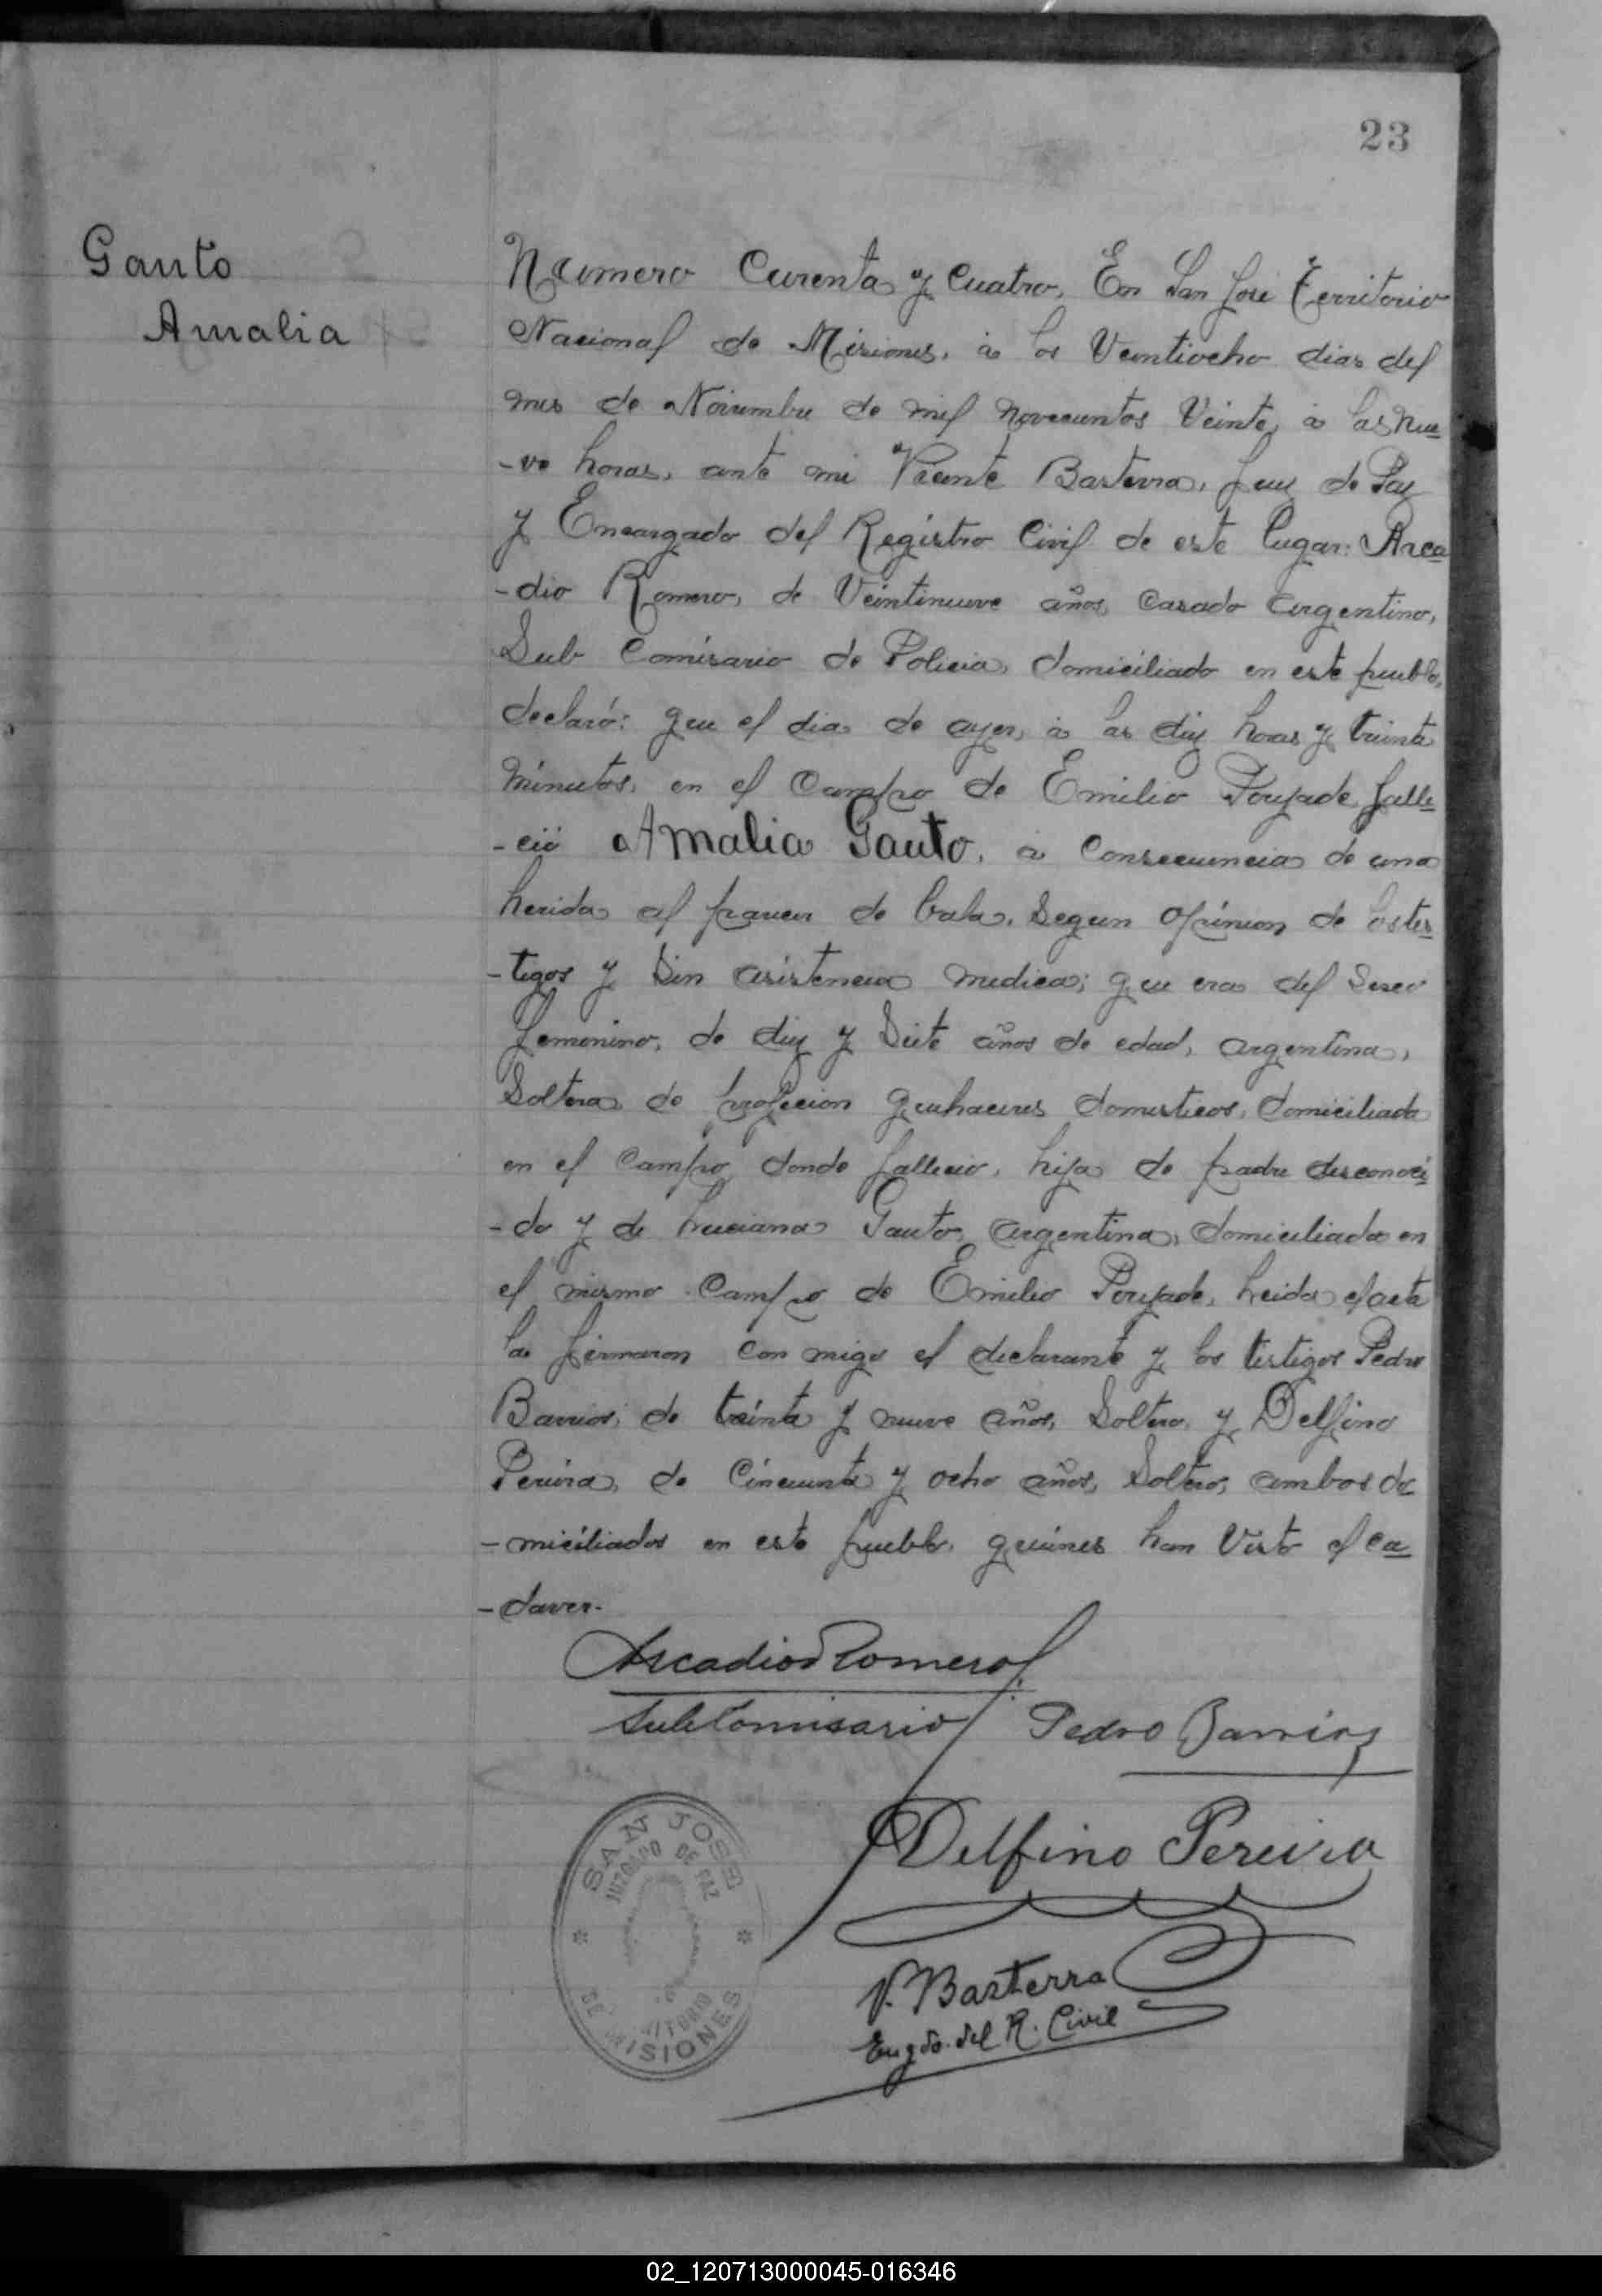 23
Gauto
Amalia
Número Curenta y Cuatro, En San José Territorio
Nacional de Misiones, á los Veintiocho dias del
mes de Noviembre de mil novecientos Veinte, á las nue
-ve horas, ante mi Vicente Basterra, Juez de Paz
y Encargado del Registro Civil de este lugar: Arca
-dio Romero, de Veintinueve años, Casado argentino,
Sub Comisario de Policia, domiciliado en este pueblo,
declaró: que el dia de ayer, á las diez horas y treinta
minutos, en el Campo de Emilio Poujade, falle
-ció Amalia Gauto, á consecuencia de una
herida al parecer de bala, segun opinion de los tes
-tigos y sin asistencia medica; que era del sexo
femenino, de diez y siete años de edad, argentina,
Soltera de profecion quehaceres domesticos, domiciliada
en el Campo donde fallecio, hija de padre desconoci
-do y de Luciana Gauto, argentina, domiciliada en
el mismo Campo de Emilio Poujade, Leida el acta
la firmaron con migo el declarante y los testigos Pedro
Barrios, de treinta y nueve años, Soltero, y Delfino
Pereira, de Cincuenta y ocho años, Soltero, ambos do
-miciliados en este pueblo, quienes han Visto el ca
-daver.
Arcadio Romero
SubComisario
Pedro Barrios
Delfino Pereira
V. Basterra
Engdo. del R. Civil
SAN JOSE
JUZGADO DE PAZ
DE MISIONES
02_120713000045-016346